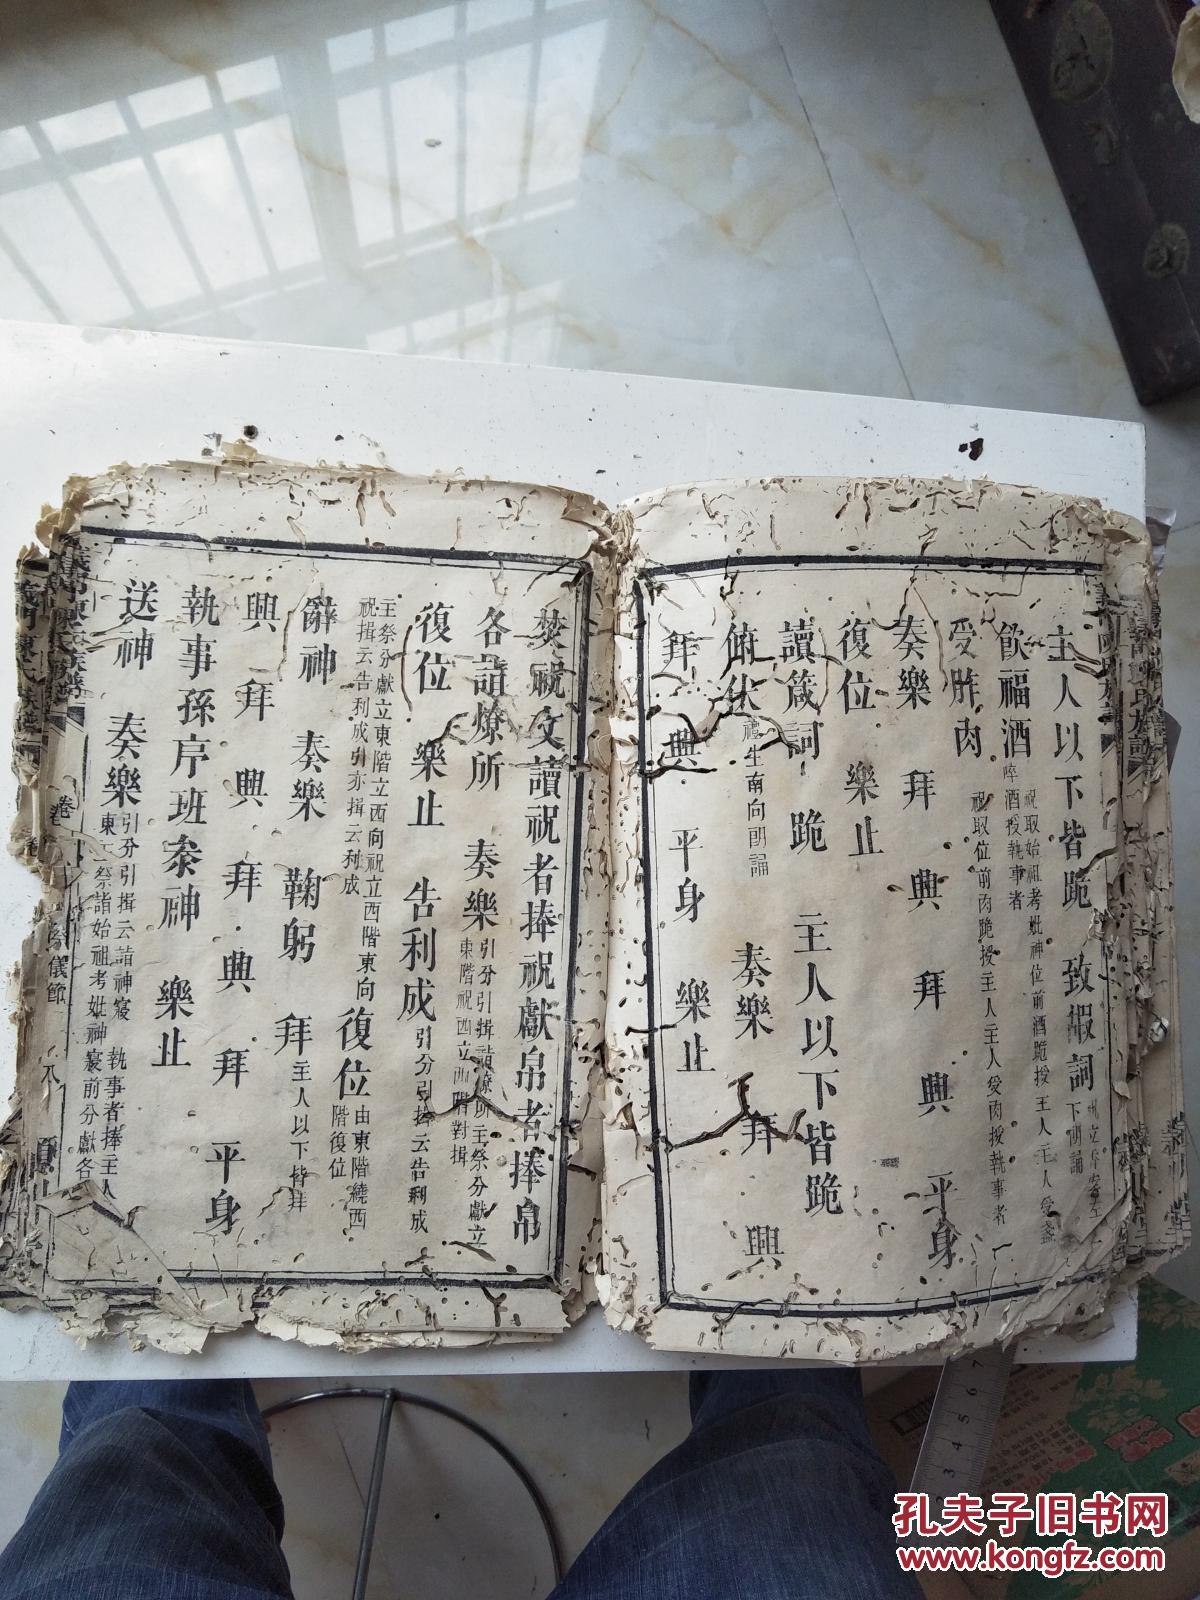 主人以下皆跪　致嘏詞
飲福酒　祝取始祖考妣神位前酒跪授主人主人受盞
啐酒授執事者
受胙肉　祝取位前肉跪授主人主人受肉授執事者
奏樂　拜　興　拜　興　平身
復位　樂止
讀箴詞　跪　主人以下皆跪
俯伏　禮生南向朗誦　奏樂　拜　興
拜　興　平身　樂止
焚祝文讀祝者捧祝獻帛者捧帛
各詣燎所　奏樂　引分引揖詣燎所主祭分獻立
東階祝西立西階對揖
復位　樂止　告利成　引分引揖云告利成
主祭分獻立東階立西向祝立西階東向　復位　由東階繞西
祝揖云告利成引亦揖云利成　階復位
辭神　奏樂　鞠躬　拜　主人以下皆拜
興　拜　興　拜　興　拜　平身
執事孫序班叅神　樂止
送神　奏樂　引分引揖云詣神寢　執事者捧主人
東主祭詣始祖考妣神寢前分獻各
義門陳氏族譜
卷
祭儀節
八
孔夫子旧书网
www.kongfz.com
3 4 5 6 7